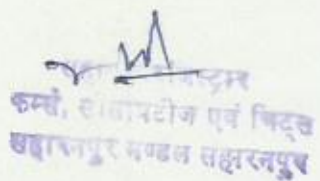 रजिस्ट्रार
फर्म्स, सोसायटीज एवं चिट्स
सहारनपुर मण्डल सहारनपुर